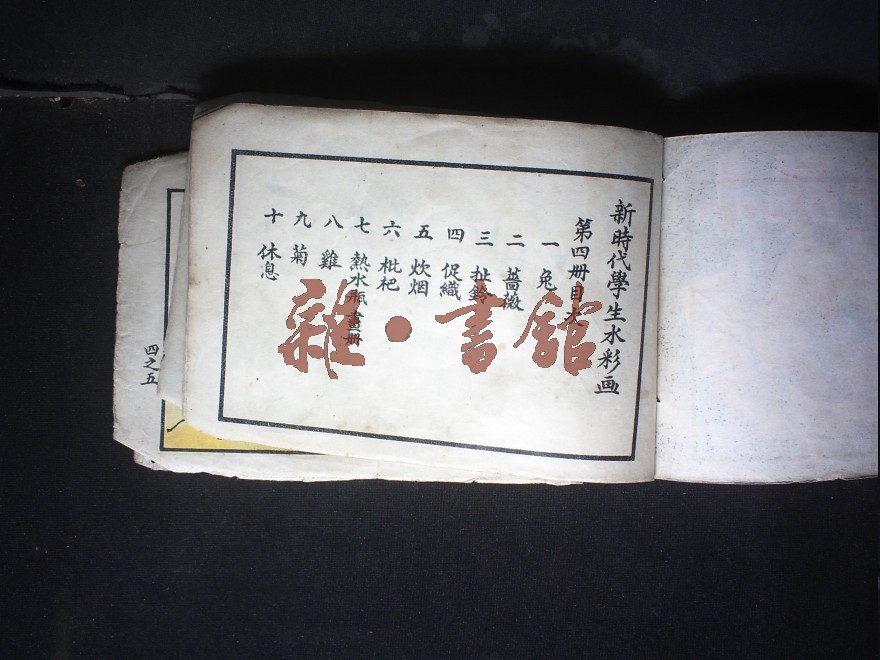 新時代學生水彩画
第四册目次
一 兔
二 薔薇
三 扯鈴
四 促織
五 炊烟
六 枇杷
七 熱水瓶 畫册
八 雞
九 菊
十 休息
四之五
雜·書館